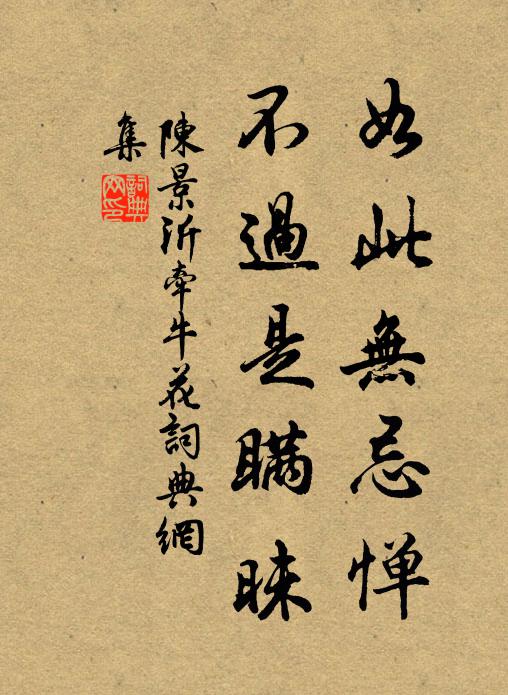 如此無忌惮
不過是瞞睐
陳景沂牽牛花詞典網
集
詞典网印